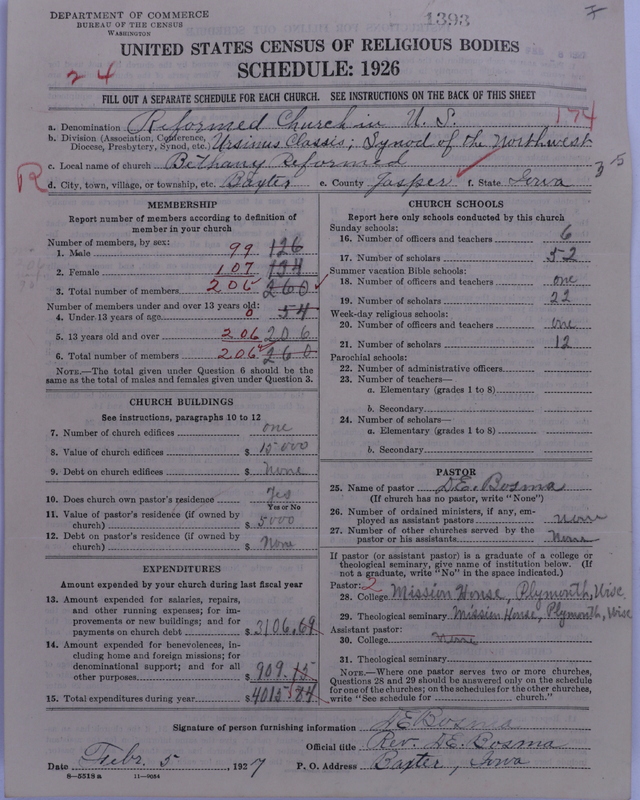 DEPARTMENT OF COMMERCE
BUREAU OF THE CENSUS
WASHINGTON
1393
UNITED STATES CENSUS OF RELIGIOUS BODIES
24
SCHEDULE: 1926
FILL OUT A SEPARATE SCHEDULE FOR EACH CHURCH. SEE INSTRUCTIONS ON THE BACK OF THIS SHEET
174
a. Denomination Reformed Church in U. S.
b. Division (Association, Conference, Diocese, Presbytery, Synod, etc.) Ursinus Classis; Synod of the Northwest
c. Local name of church Bethany Reformed
R d. City, town, village, or township, etc. Baxter e. County Jasper f. State Iowa 35
MEMBERSHIP
Report number of members according to definition of
member in your church
Number of members, by sex:
1. Male 99 126
2. Female 107 134
3. Total number of members 206 260
Number of members under and over 13 years old:
4. Under 13 years of age 0 54
5. 13 years old and over 206 206
6. Total number of members 206 260
NOTE.—The total given under Question 6 should be
same as the total of males and females given under Question 3.
CHURCH BUILDINGS
See instructions, paragraphs 10 to 12
7. Number of church edifices one
8. Value of church edifices $ 15000
9. Debt on church edifices $ None
10. Does church own pastor's residence Yes
Yes or No
11. Value of pastor's residence (if owned by
church) $ 5000
12. Debt on pastor's residence (if owned by
church) $ None
EXPENDITURES
Amount expended by your church during last fiscal year
13. Amount expended for salaries, repairs,
and other running expenses; for im-
provements or new buildings; and for
payments on church debt $ 3106.69
14. Amount expended for benevolences, in-
cluding home and foreign missions; for
denominational support; and for all
other purposes $ 909.15
15. Total expenditures during year $ 4015.84
CHURCH SCHOOLS
Report here only schools conducted by this church
Sunday schools:
16. Number of officers and teachers 6
17. Number of scholars 52
Summer vacation Bible schools:
18. Number of officers and teachers one
19. Number of scholars 22
Week-day religious schools:
20. Number of officers and teachers one
21. Number of scholars 12
Parochial schools:
22. Number of administrative officers
23. Number of teachers—
a. Elementary (grades 1 to 8)
b. Secondary
24. Number of scholars—
a. Elementary (grades 1 to 8)
b. Secondary
PASTOR
25. Name of pastor D.E. Bosma
(If church has no pastor, write "None")
26. Number of ordained ministers, if any, em-
ployed as assistant pastors None
27. Number of other churches served by the
pastor or his assistants None
If pastor (or assistant pastor) is a graduate of a college or
theological seminary, give name of institution below. (If
not a graduate, write "No" in the space indicated.)
Pastor: 2
28. College Mission House, Plymouth, Wisc.
29. Theological seminary Mission House, Plymouth, Wisc
Assistant pastor:
30. College None
31. Theological seminary
NOTE.—Where one pastor serves two or more churches,
Questions 28 and 29 should be answered only on the schedule
for one of the churches; on the schedules for the other churches,
write "See schedule for church."
Signature of person furnishing information D.E. Bosma
Official title Rev. D.E. Bosma
Date Febr. 5, 1927 P. O. Address Baxter, Iowa
8—5513 a 11—9054